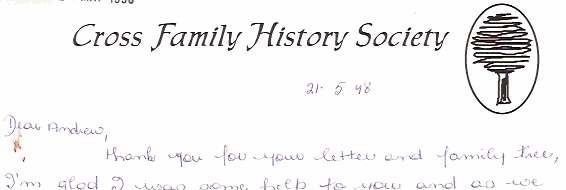 Cross Family History Society
21. 5 98
Dear Andrew,
thank you for your letter and family tree,
I'm glad I was some help to you and as we